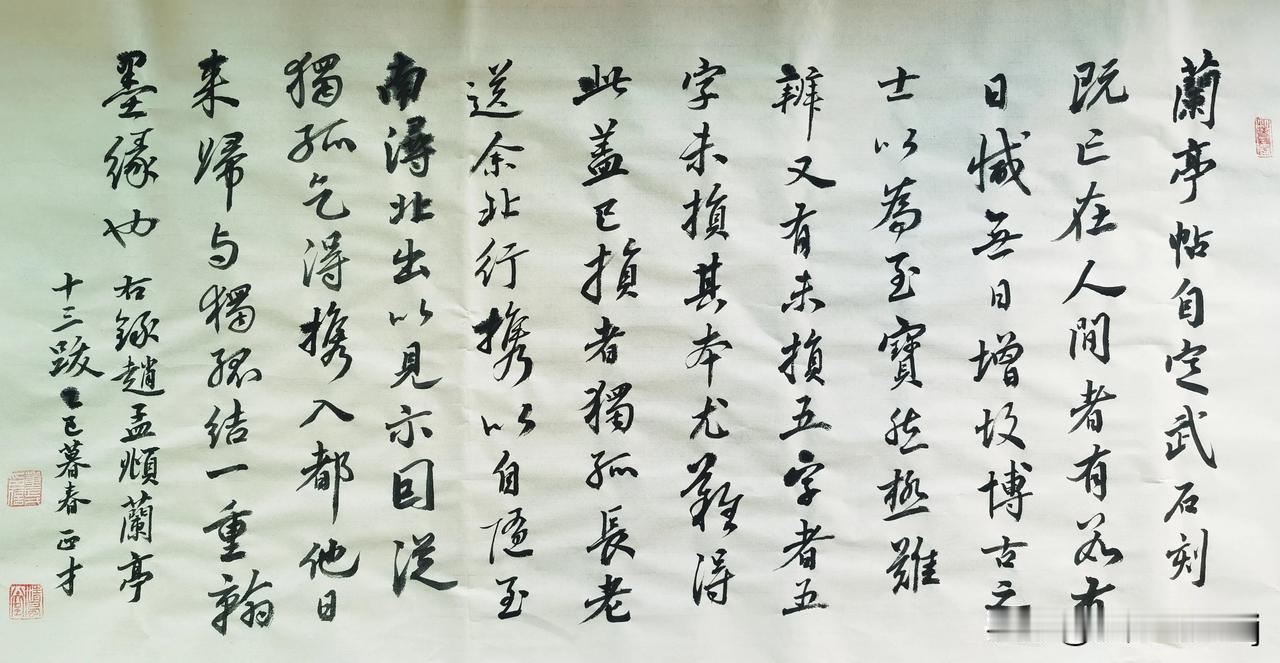 蘭亭帖自定武石刻
既亡在人間者有数有
日減無日增故博古之
士以為至寶然極難
辨又有未損五字者五
字未損其本尤難得
此蓋已損者獨孤長老
送余北行携以自隨至
南潯北出以見示因從
獨孤乞得携入都他日
来歸与獨孤結一重翰
墨緣也 右錄趙孟頫蘭亭
十三跋 乙巳暮春 正才